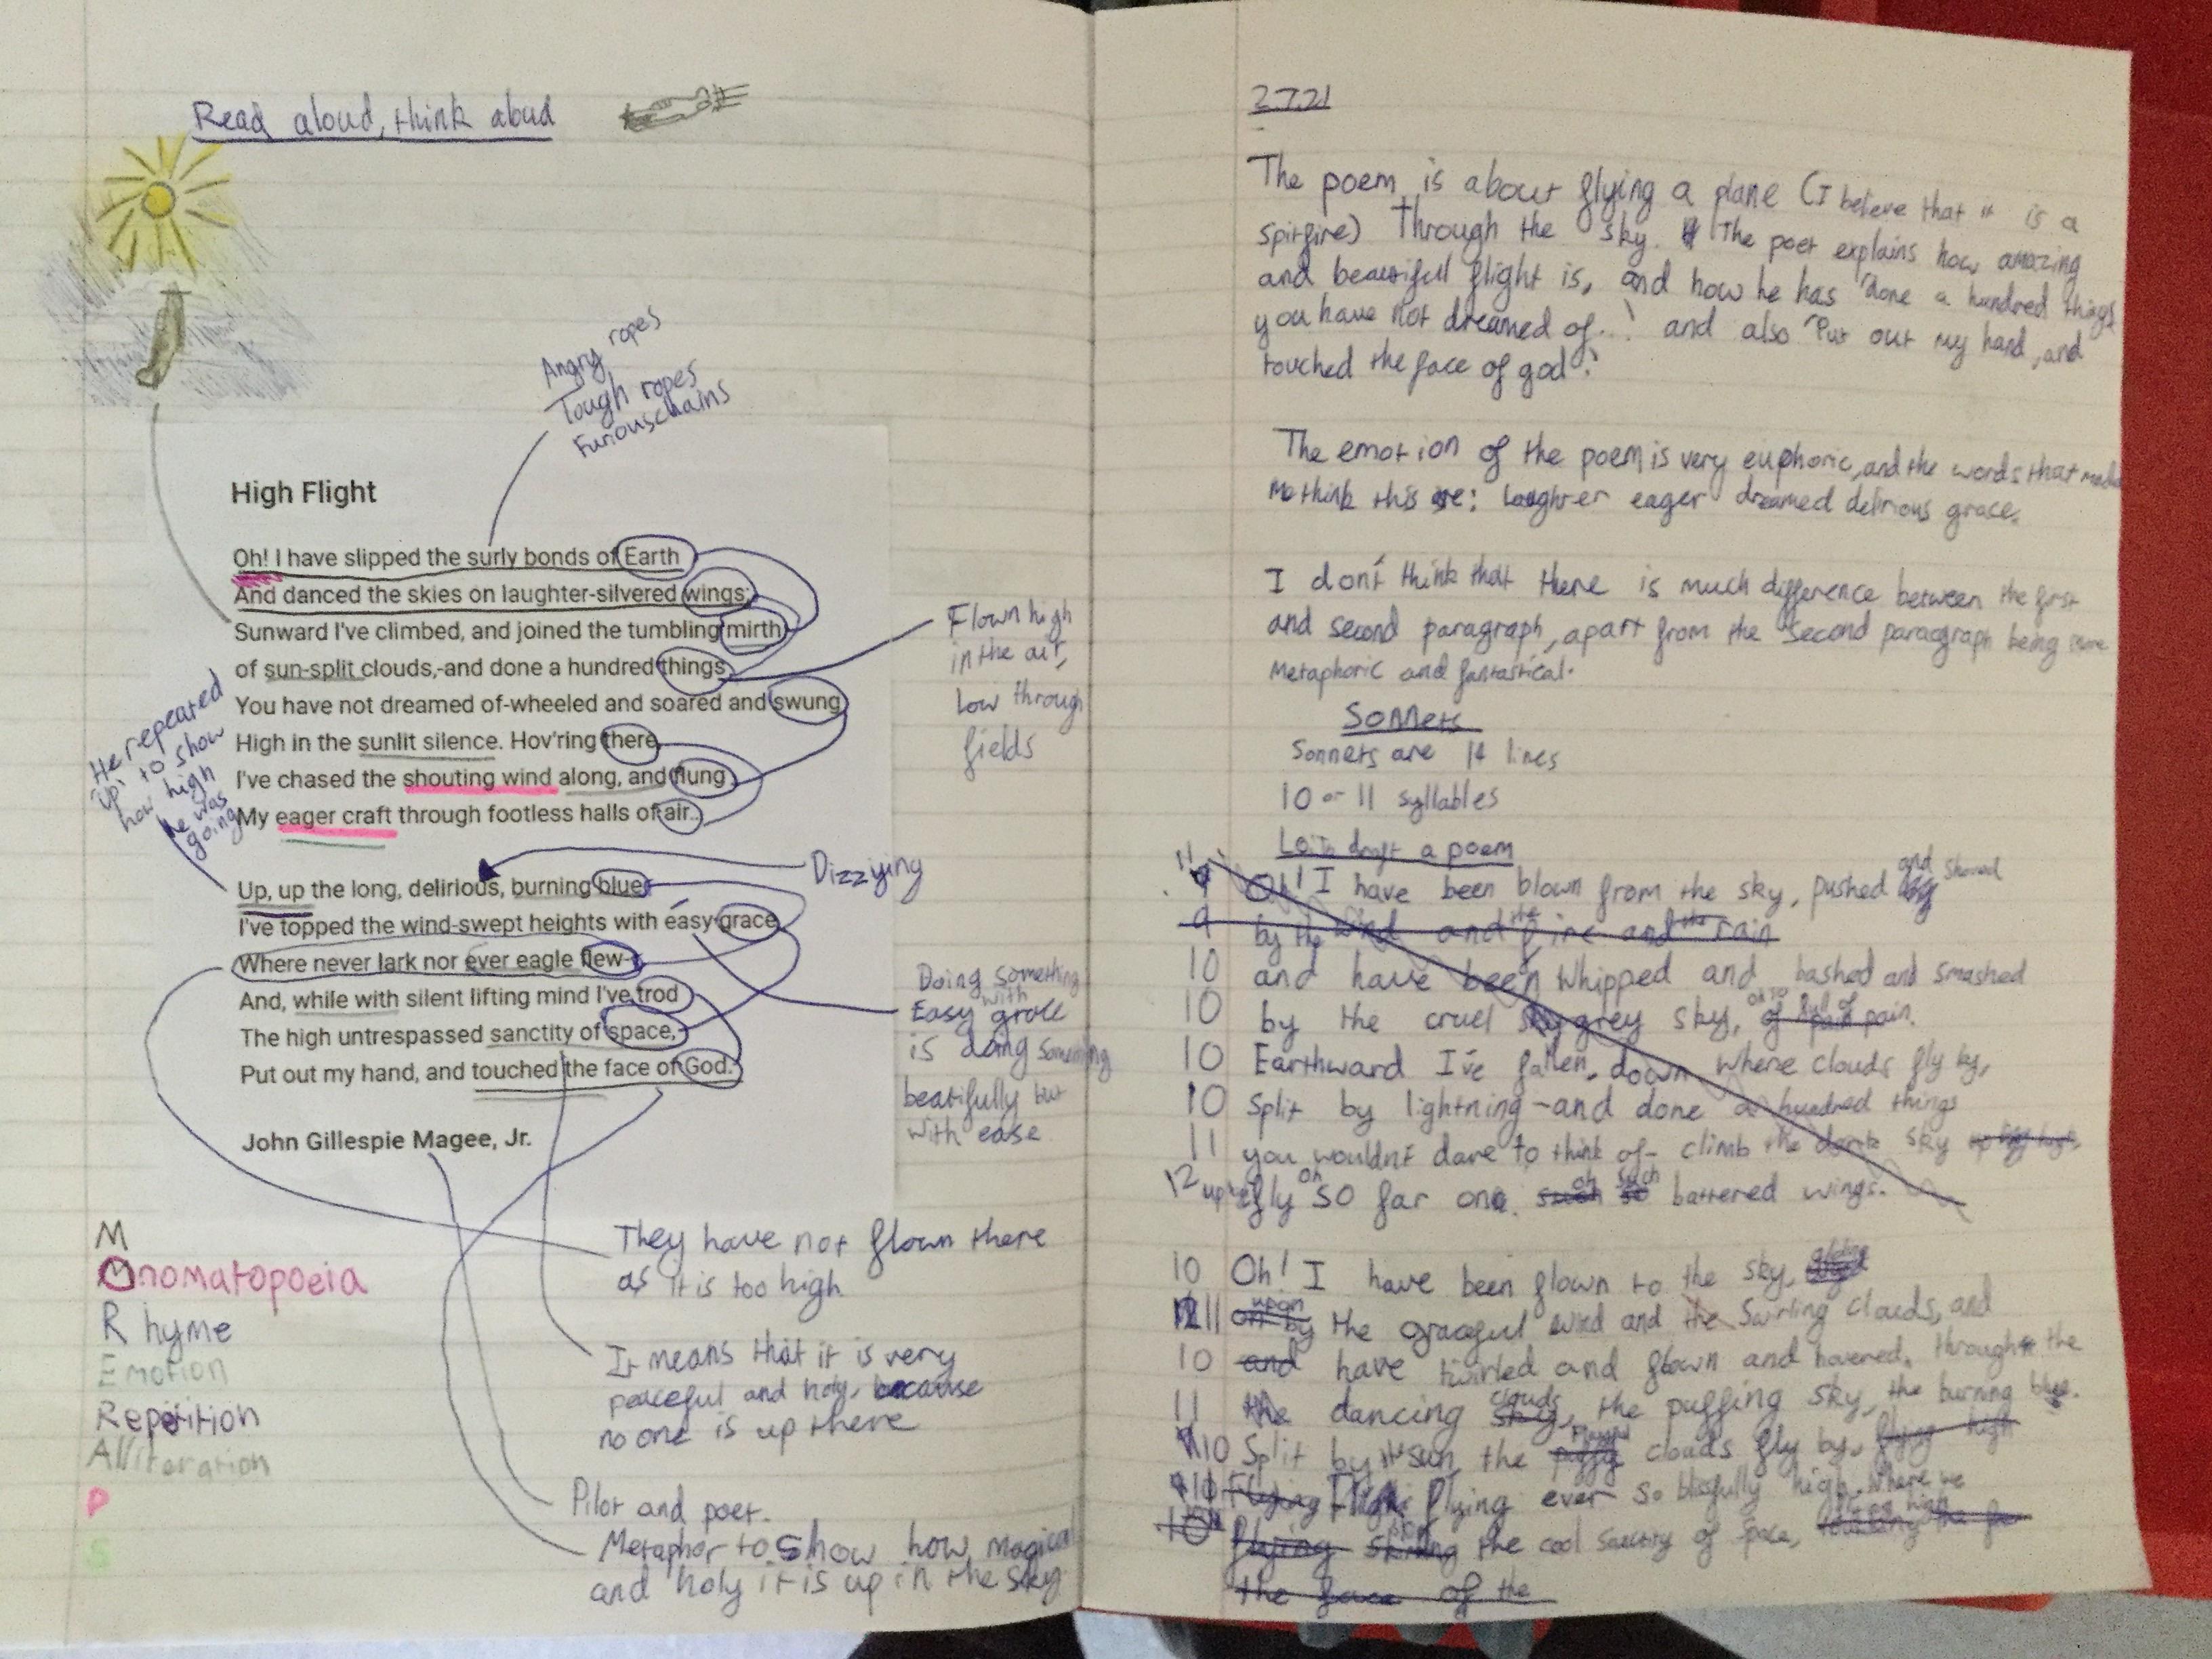 Read aloud, think aloud
Angry ropes
Tough ropes
Furious chains
High Flight
Oh! I have slipped the surly bonds of Earth
And danced the skies on laughter-silvered wings;
Sunward I've climbed, and joined the tumbling mirth
of sun-split clouds,-and done a hundred things
You have not dreamed of-wheeled and soared and swung
High in the sunlit silence. Hov'ring there
I've chased the shouting wind along, and flung
My eager craft through footless halls of air..
Flown high
in the air,
Low through
fields
He repeated
'up' to show
how high
he was
going
Up, up the long, delirious, burning blue
I've topped the wind-swept heights with easy grace
Where never lark nor ever eagle flew-
And, while with silent lifting mind I've trod
The high untrespassed sanctity of space,
Put out my hand, and touched the face of God.
John Gillespie Magee, Jr.
Dizzying
Doing something
with
Easy grace
is doing something
beatifully but
with ease
They have not flown there
as it is too high
It means that it is very
peaceful and holy, because
no one is up there
Pilot and poet.
Metaphor to show how magical
and holy it is up in the sky
M
Onomatopoeia
Rhyme
Emotion
Repetition
Alliteration
P
S
2.7.21
The poem is about flying a plane (I believe that it is a
spitfire) Through the sky. The poet explains how amazing
and beautiful flight is, and how he has 'done a hundred things
you have not dreamed of..' and also 'Put out my hand, and
touched the face of god'.
The emotion of the poem is very euphoric, and the words that made
me think this are: Laughter eager dreamed delirious grace.
I don't think that there is much difference between the first
and second paragraph, apart from the second paragraph being more
metaphoric and fantastical.
Sonnets
Sonnets are 14 lines
10 or 11 syllables
draft a poem
11 Oh! I have been blown from the sky, pushed and shoved
9 by the wind and the fire and the rain
10 and have been whipped and bashed and smashed
10 by the cruel grey sky, full of pain.
10 Earthward I've fallen, down where clouds fly by,
10 Split by lightning-and done a hundred things
11 you wouldn't dare to think of- climb the dark sky
12 fly so far on such battered wings.
10 Oh! I have been flown to the sky,
11 upon the graceful wind and the swirling clouds, and
10 and have twirled and flown and hovered, through the
11 the dancing clouds, the puffing sky, the burning blue.
10 Split by the sun, the clouds fly by, flying high
Flying ever so blissfully high. Where we
10 the cool sanctity of space,
the face of the